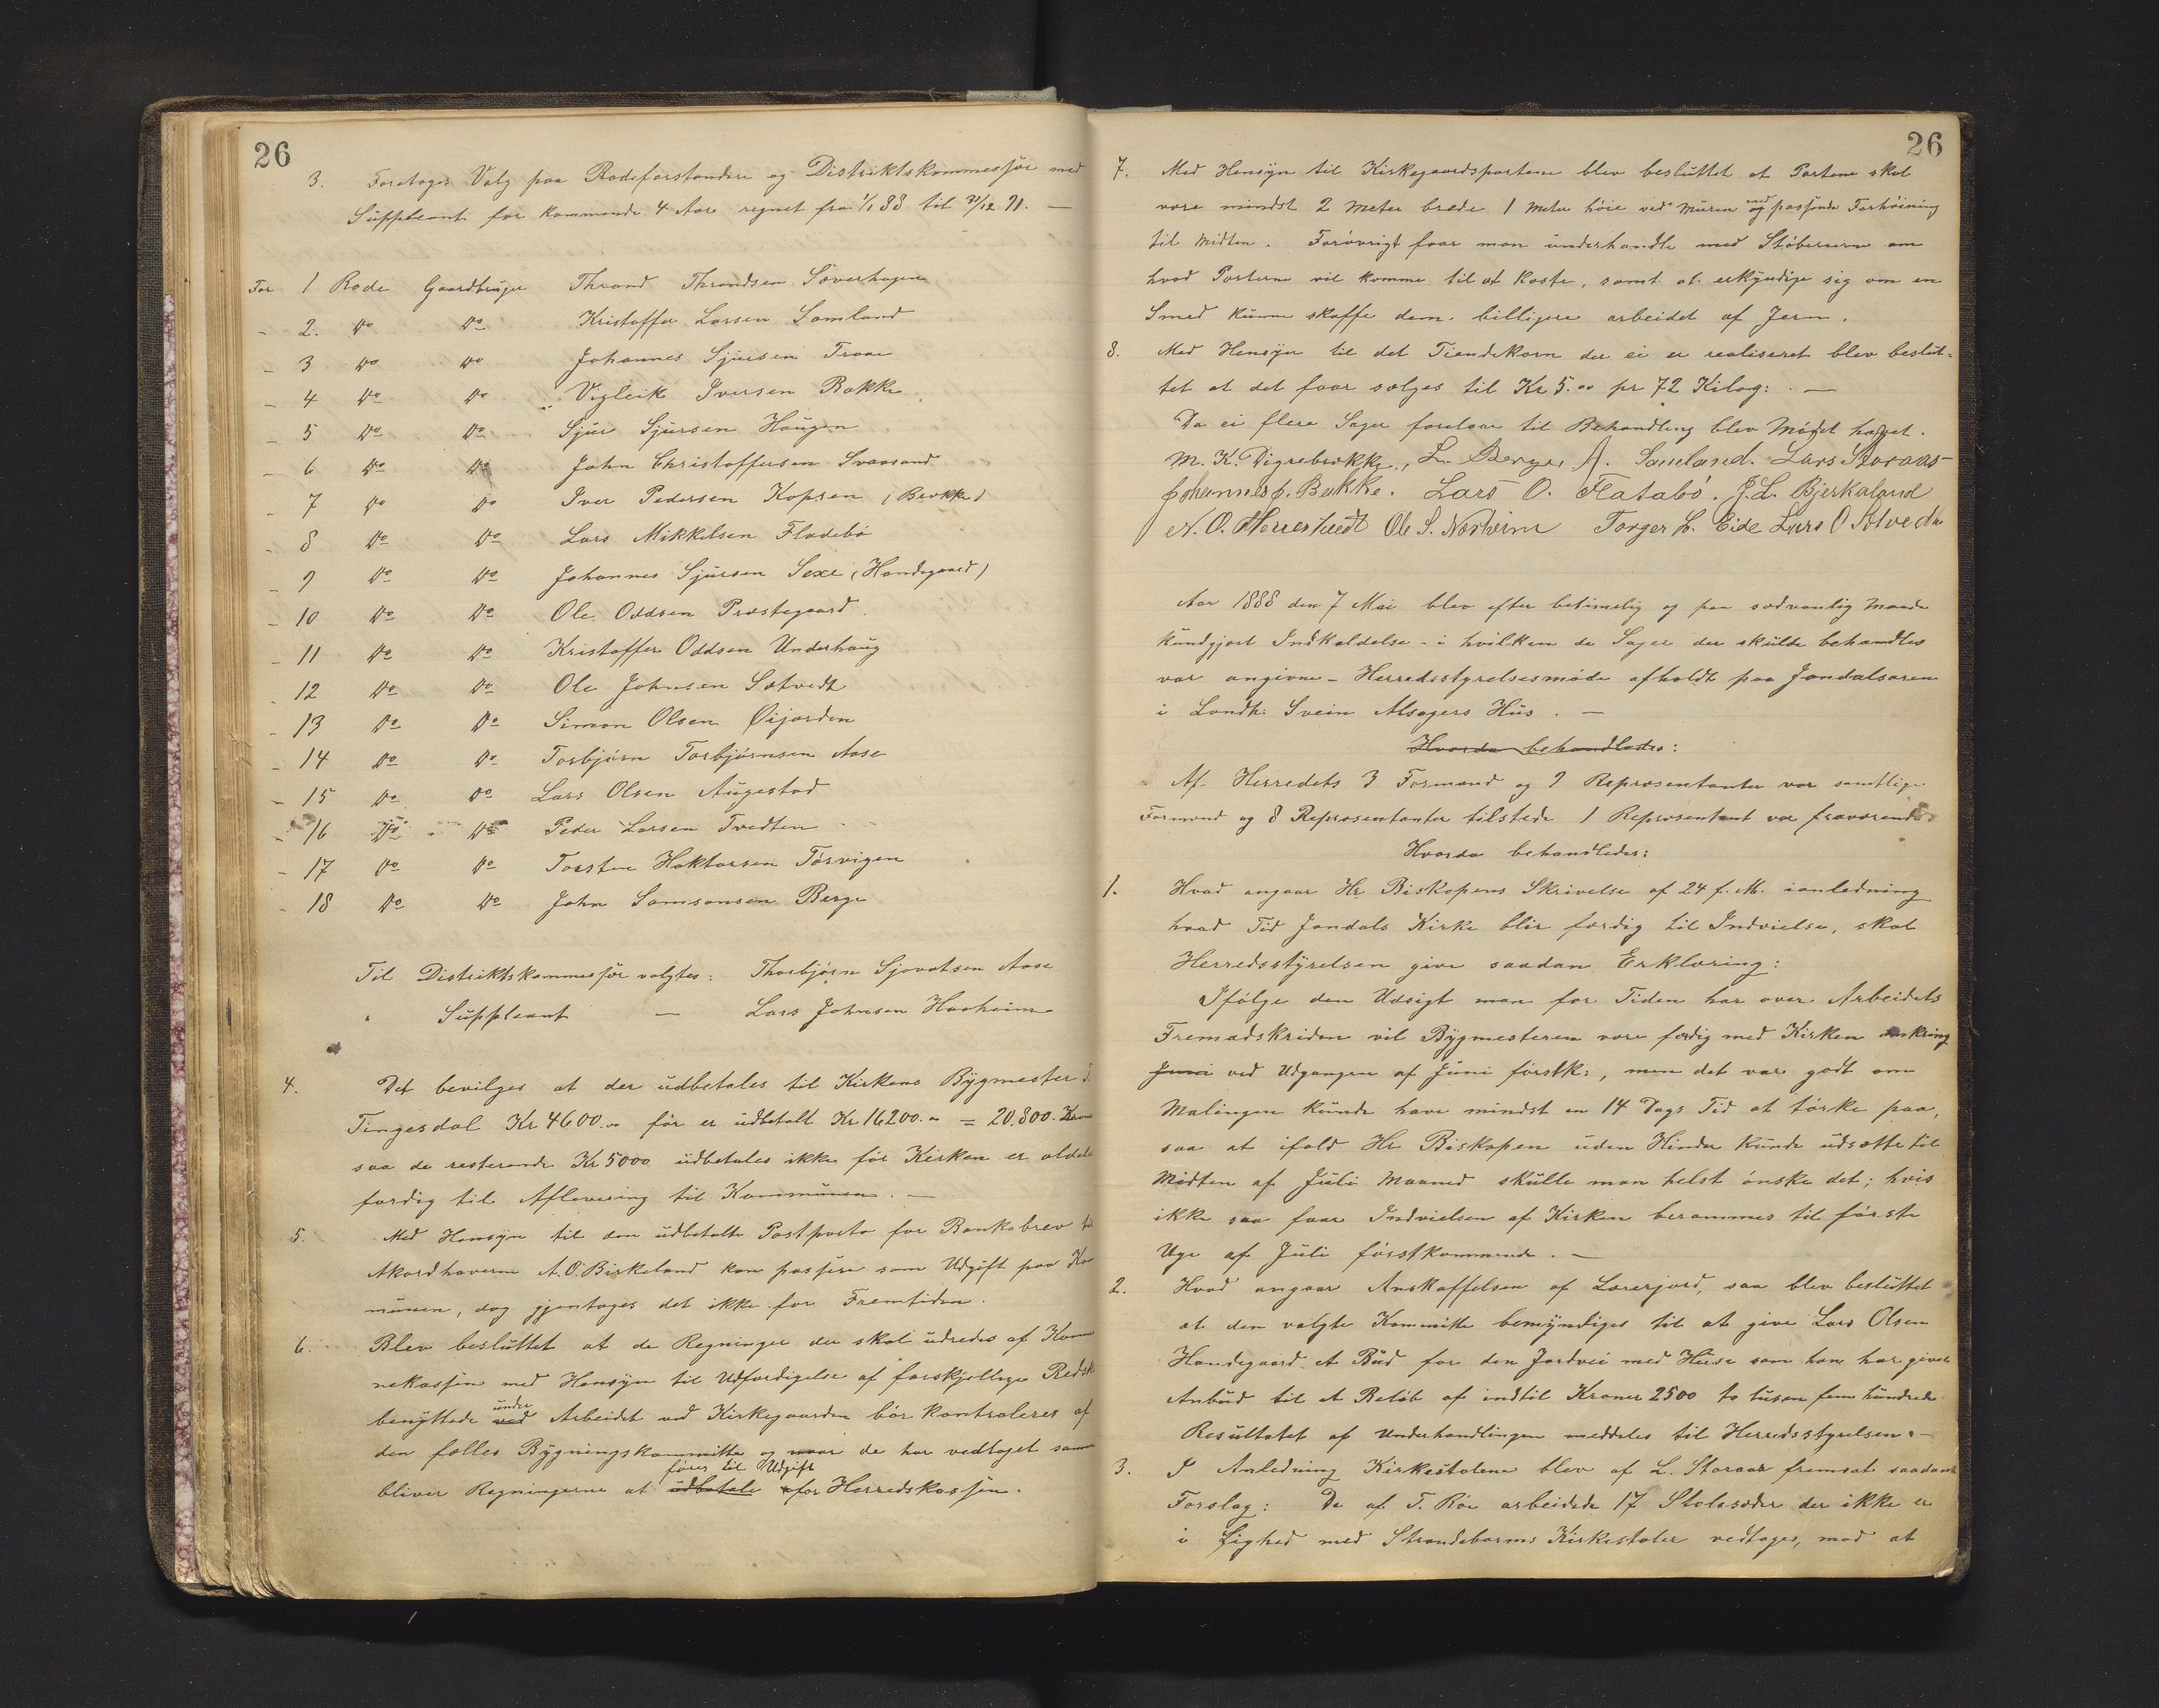 26
3. Foretoges Valg paa Rodeforstandere og Distriktskommesjør med
Suppleant for kommende 4 Aar regnet fra 1/1 88 til 31/12 91. —
For 1 Rode Gaardbruger Thrond Throndsen Søverhagen
- 2. Do Do Kristoffer Larsen Samland
- 3 Do Do Johannes Sjursen Traae
- 4 Do Do Vigleik Iversen Bakke
- 5 Do Do Sjur Sjursen Haugen
- 6 Do Do John Christoffersen Svaasand
- 7 Do Do Iver Pedersen Kopsen (Brække)
- 8 Do Do Lars Mikkelsen Fladebø
- 9 Do Do Johannes Sjursen Sexe (Handegaard)
- 10 Do Do Ole Oddsen Prestegaard
- 11 Do Do Kristoffer Oddsen Underhaug
- 12 Do Do Ole Johnsen Sætvedt
- 13 Do Do Simon Olsen Øijorden
- 14 Do Do Torbjørn Torbjørnsen Aase
- 15 Do Do Lars Olsen Augestad
- 16 Do Do Peder Larsen Tvedten
- 17 Do Do Torsten Haktorsen Tørvigen
- 18 Do Do John Samsonsen Berge
Til Distriktskommesjør valgtes: Thorbjørn Sjovatsen Aase
" Suppleant — Lars Johnsen Haaheim
4. Det bevilges at der udbetales til Kirkens Bygmester
Tingesdal Kr 4600.00 før er udbetalt Kr 16200.00 = 20,800.
saa de resterende Kr 5000 udbetales ikke før Kirken er
færdig til Aflevering til Kommunen. —
5. Med Hensyn til den udbetalte Postporto for Bankobrev
Akordhaveren A. O. Birkeland kan passere som Udgift paa
munen, dog gjentages det ikke for Fremtiden.
6. Blev besluttet at de Regninger der skal udredes af
nekassen med Hensyn til Udfærdigelse af forskjellige
under
benyttede ved Arbeidet ved Kirkegaarden bør kontroleres af
den fælles Bygningskommitte og naar de har vedtaget
føres til Udgift
bliver Regningerne at udbetale for Herredskassen.
26
7. Med Hensyn til Kirkegaardsportene blev besluttet at Portene skal
med
være mindst 2 Meter brede 1 Meter høie ved Muren og passende Forhøining
til Midten. Forøvrigt faar man underhandle med Støberierne om
hvad Porterne vil komme til at koste, samt at erkyndige sig om en
Smed kunne skaffe dem billigere arbeidet af Jern.
8. Med Hensyn til det Tiendekorn der ei er realiseret blev beslut-
tet at det faar sælges til Kr 5.00 pr 72 Kilog: . —
Da ei flere Sager forelaar til Behandling blev Mødet hævet.
M. K. Digrebrække, L. Berge, A. Samland. Lars Storaas-
Johannes J. Bakke. Lars O. Flatabö. J. L. Bjerkaland
N. O. Herrestvedt Ole S. Næsheim Torger L. Eide Lars O Sætvedt
Aar 1888 den 7 Mai blev efter betimelig og paa sædvanlig Maade
kundgjort Indkaldelse - i hvilken de Sager der skulde behandles
var angivne - Herredsstyrelsesmøde afholdt paa Jondalsøren
i Landh: Svein Alsagers Hus. —
Hvorda behandledes:
Af Herredets 3 Formænd og 9 Repræsentanter var samtlige
Formænd og 8 Repræsentanter tilstede 1 Repræsentant var fraværende
Hvorda behandledes:
1. Hvad angaar Hr. Biskopens Skrivelse af 24 f. M. ianledning
hvad Tid Jondals Kirke blir færdig til Indvielse, skal
Herredsstyrelsen give saadan Erklæring:
Ifølge den Udsigt man for Tiden har over Arbeidets
Fremadskriden vil Bygmesteren være færdig med Kirken omkring
Juni ved Udgangen af Juni førstk:, men det var godt om
Malingen kunde have mindst en 14 Dags Tid at tørke paa,
saa at ifald Hr Biskopen uden Hinder kunde udsætte til
Midten af Juli Maaned skulle man helst ønske det; hvis
ikke saa faar Indvielsen af Kirken berammes til første
Uge af Juli førstkommende. —
2. Hvad angaar Anskaffelsen af Lærerjord, saa blev besluttet
at den valgte Kommitte bemyndiges til at give Lars Olsen
Handegaard et Bud for den Jordvei med Huse som han har givet
Anbud til et Beløb af indtil Kroner 2500 to tusen fem hundrede
Resultatet af Underhandlingen meddeles til Herredsstyrelsen. —
3. I Anledning Kirkestolene blev af L. Storaas fremsat saadant
Forslag: De af T. Røe arbeidede 17 Stolesæder der ikke er
i Lighed med Strandebarms Kirkestoler vedtages, mod at